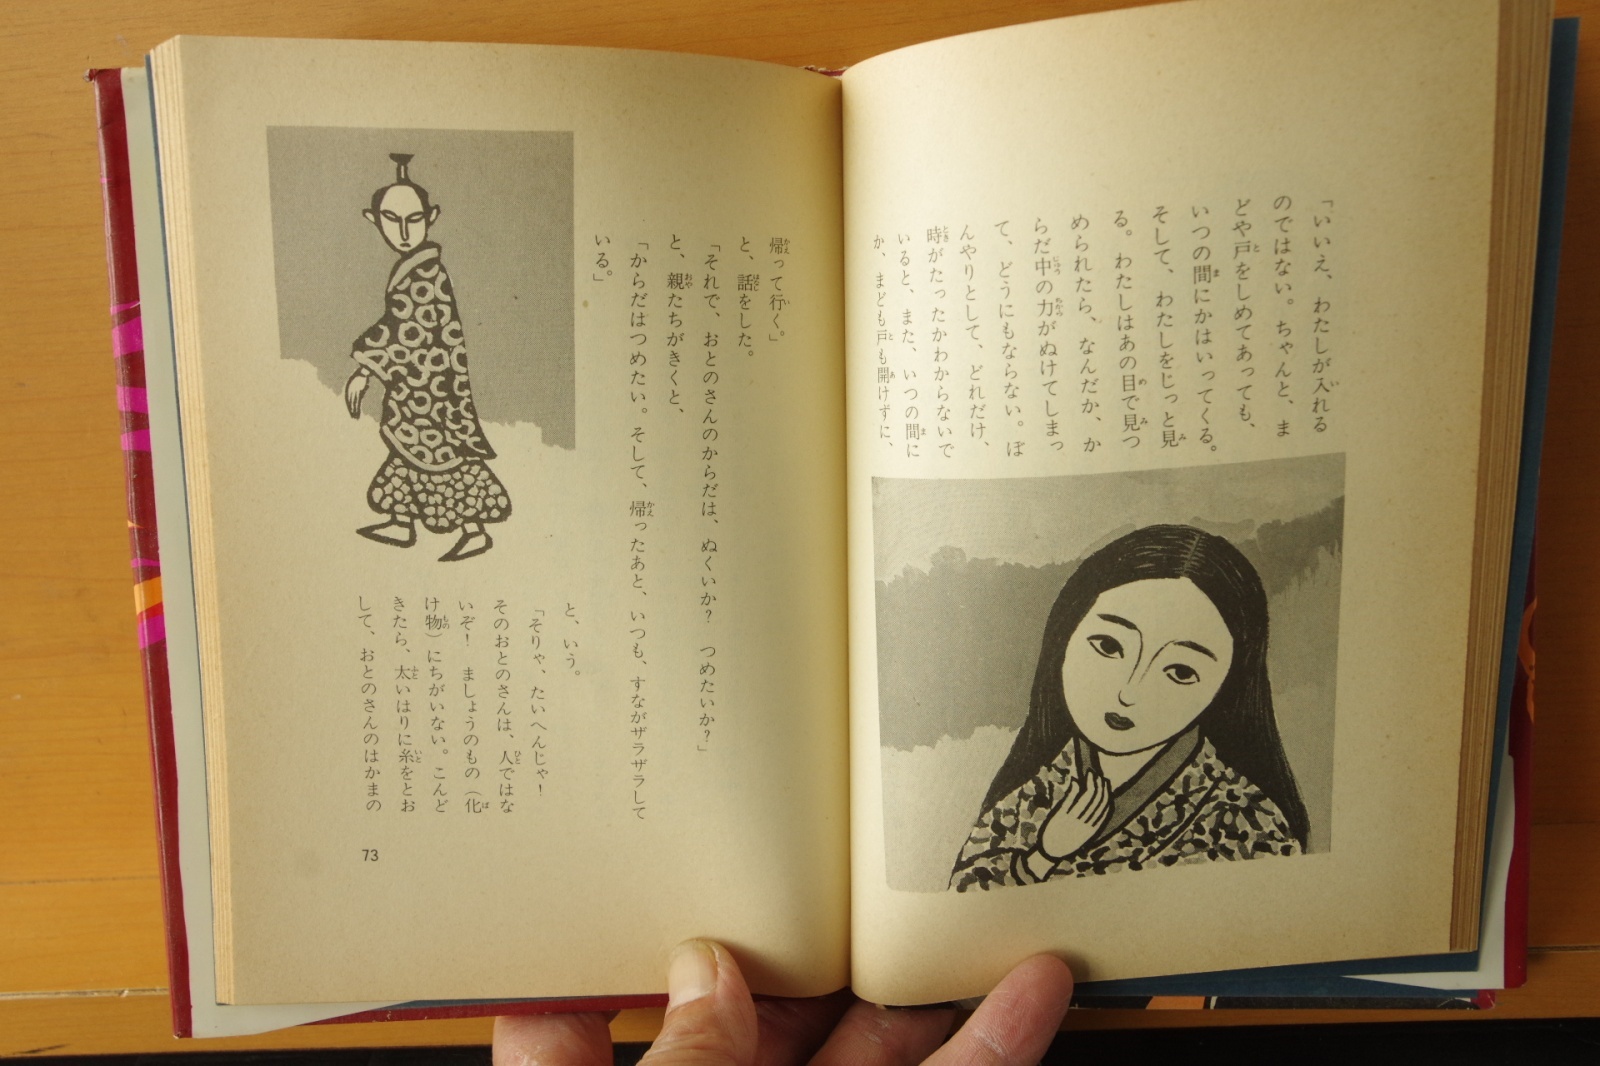 「いいえ、わたしが入れる
のではない。ちゃんと、ま
どや戸をしめてあっても、
いつの間にかはいってくる。
そして、わたしをじっと見
る。わたしはあの目で見つ
められたら、なんだか、か
らだ中の力がぬけてしまっ
て、どうにもならない。ぼ
んやりとして、どれだけ、
時がたったかわからないで
いると、また、いつの間に
か、まども戸も開けずに、
帰って行く。」
と、話をした。
「それで、おとのさんのからだは、ぬくいか？　つめたいか？」
と、親たちがきくと、
「からだはつめたい。そして、帰ったあと、いつも、すながザラザラして
いる。」
と、いう。
「そりゃ、たいへんじゃ！
そのおとのさんは、人ではな
いぞ！　ましょうのもの（化
け物）にちがいない。こんど
きたら、太いはりに糸をとお
して、おとのさんのはかまの
73